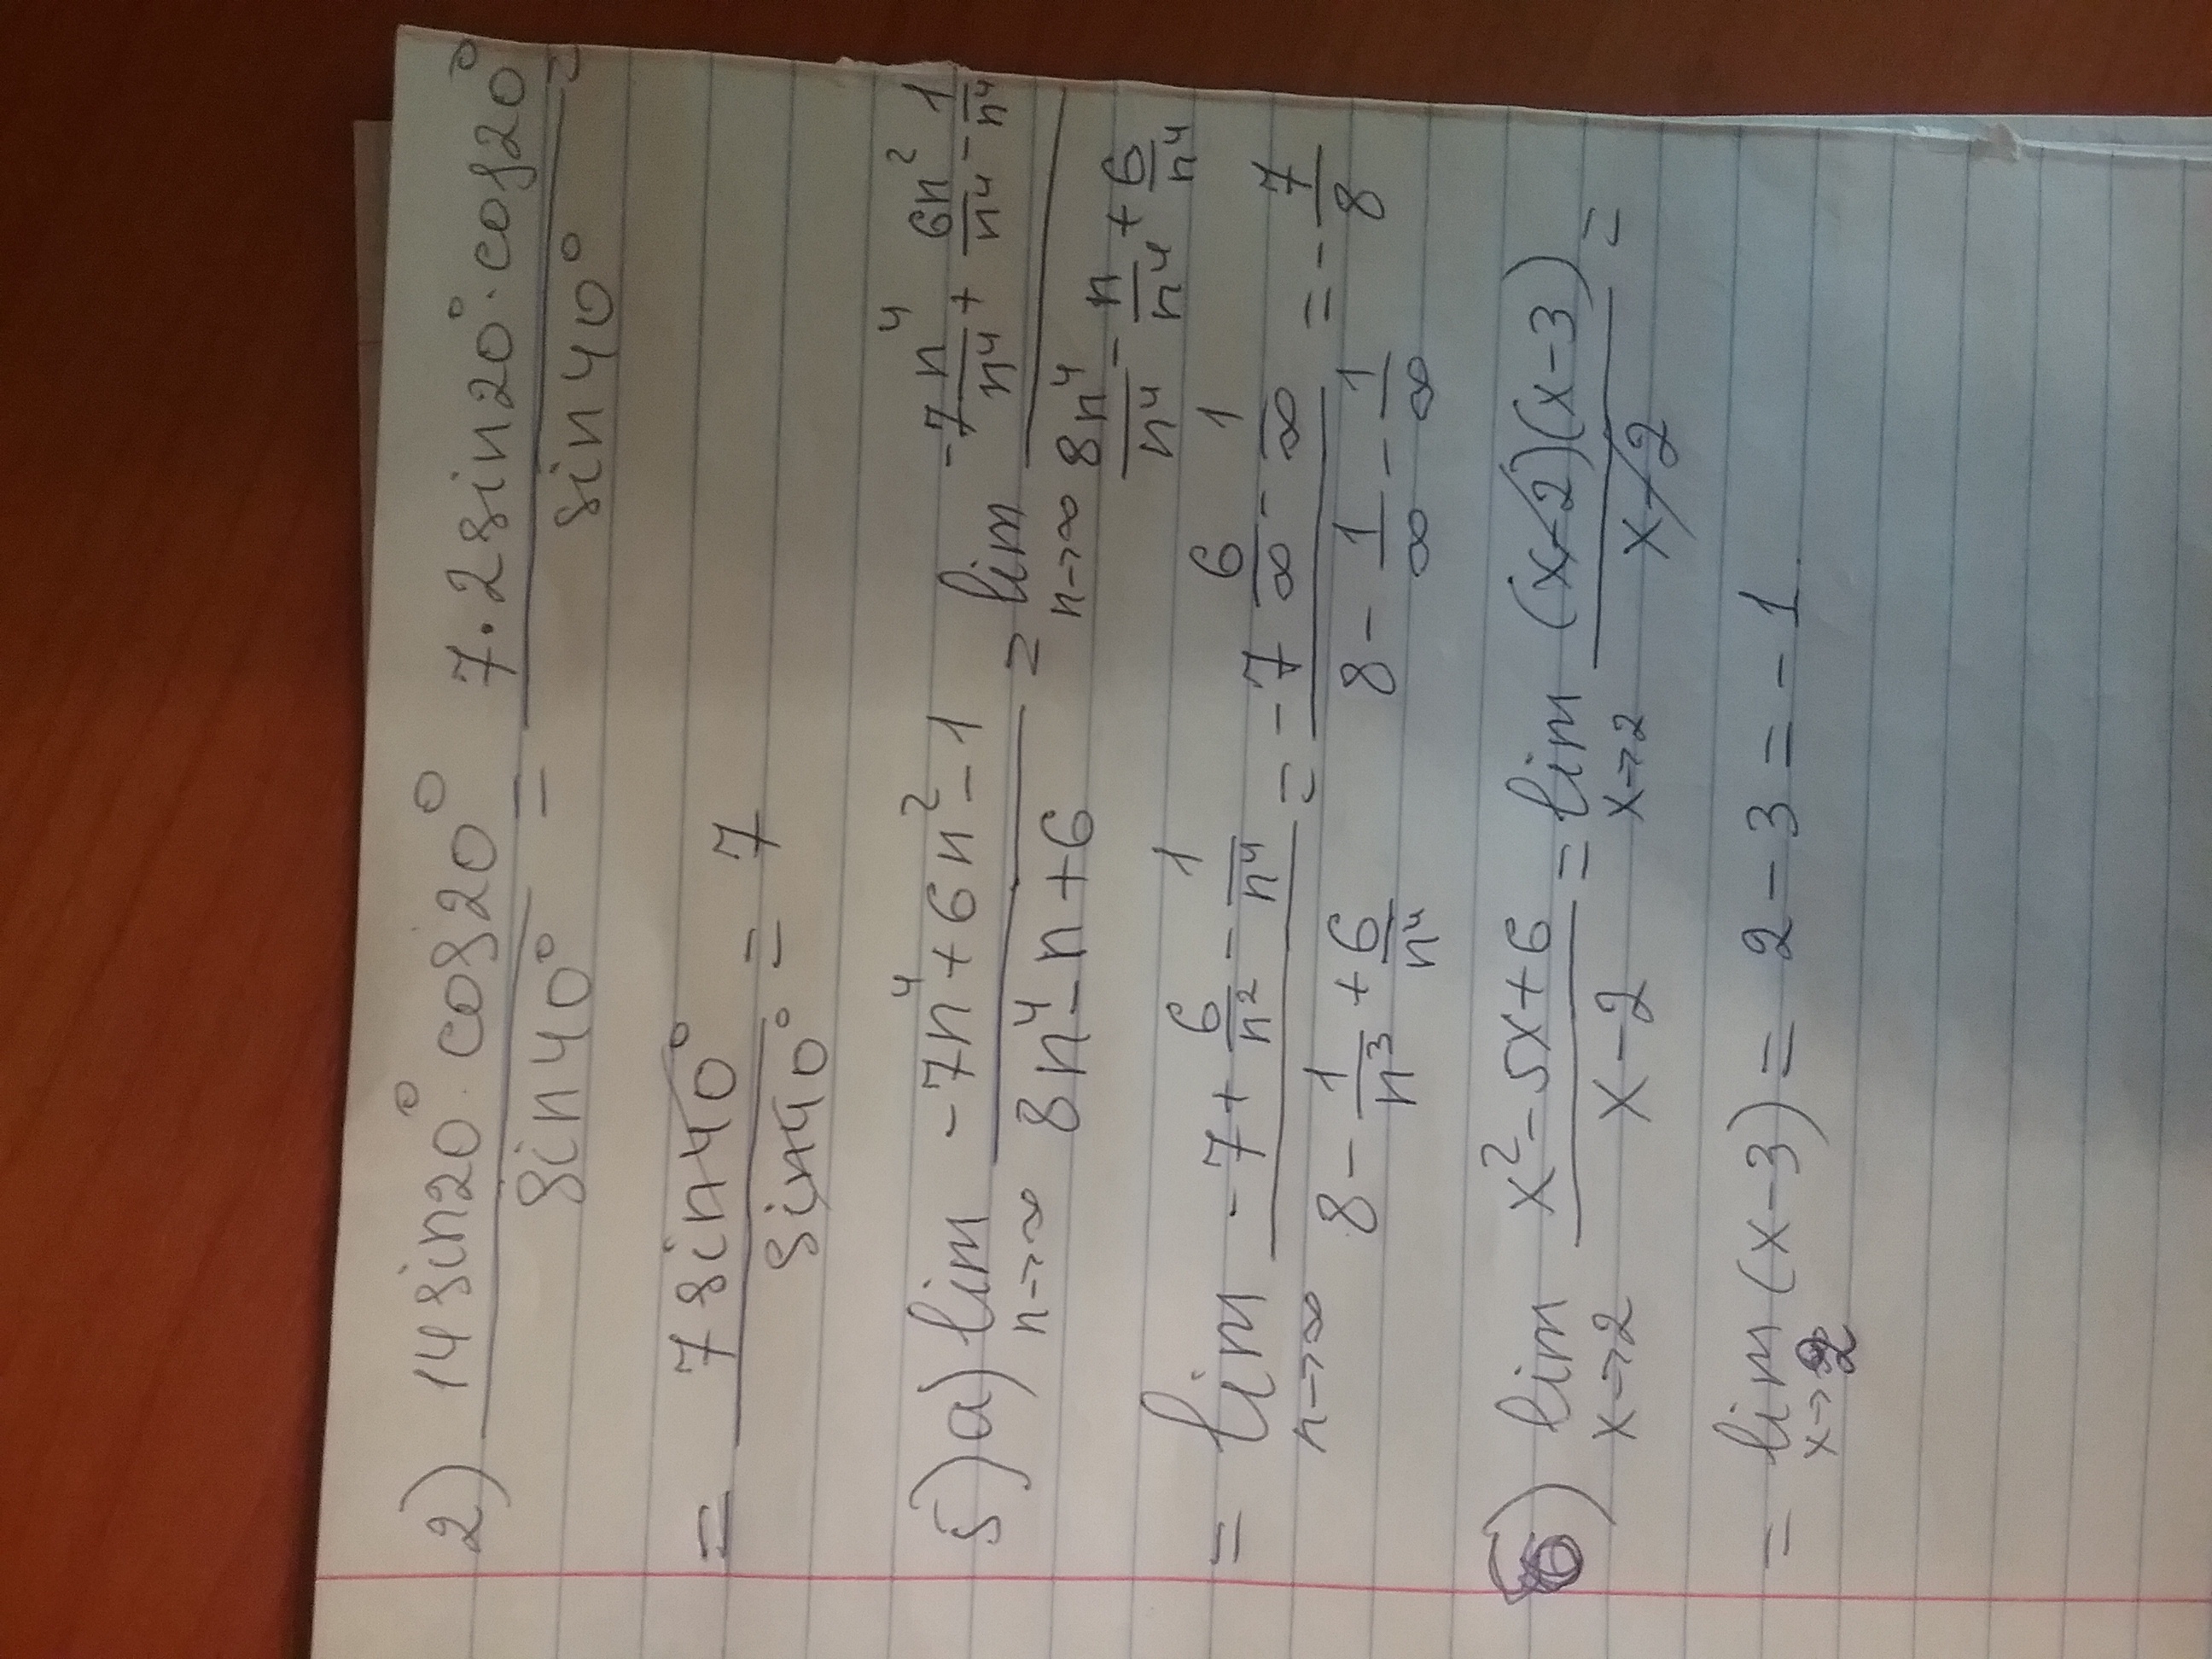 2) \frac{14 sin20° · cos20°}{sin40°} = \frac{7 · 2 sin20° · cos20°}{sin40°} =
= \frac{7 sin40°}{sin40°} = 7
5) a) \lim_{n→∞} \frac{-7n^4 + 6n^2 - 1}{8n^4 - n + 6} = \lim_{n→∞} \frac{-7\frac{n^4}{n^4} + \frac{6n^2}{n^4} - \frac{1}{n^4}}{\frac{8n^4}{n^4} - \frac{n}{n^4} + \frac{6}{n^4}}
= \lim_{n→∞} \frac{-7 + \frac{6}{n^2} - \frac{1}{n^4}}{8 - \frac{1}{n^3} + \frac{6}{n^4}} = \frac{-7 \frac{6}{∞} - \frac{1}{∞}}{8 - \frac{1}{∞} - \frac{1}{∞}} = -\frac{7}{8}
б) \lim_{x→2} \frac{x^2 - 5x + 6}{x - 2} = \lim_{x→2} \frac{(x-2)(x-3)}{x-2} =
= \lim_{x→2} (x-3) = 2 - 3 = -1